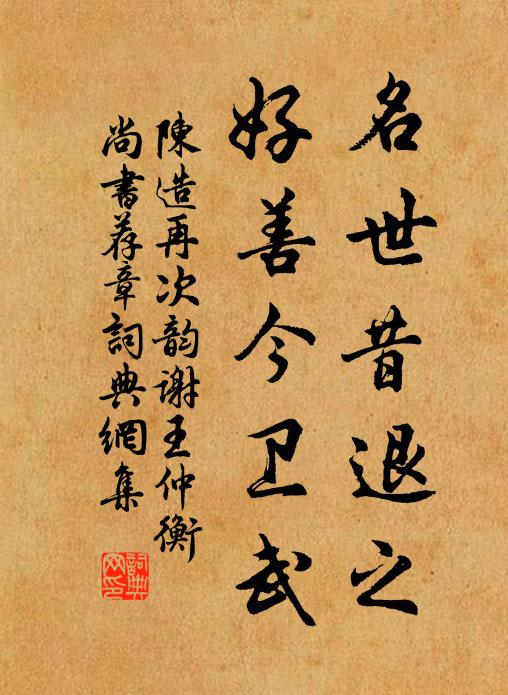 名世昔退之
好善今卫武
陳造再次韵謝王仲衡
尚書荐章詞典網集
詞典网印